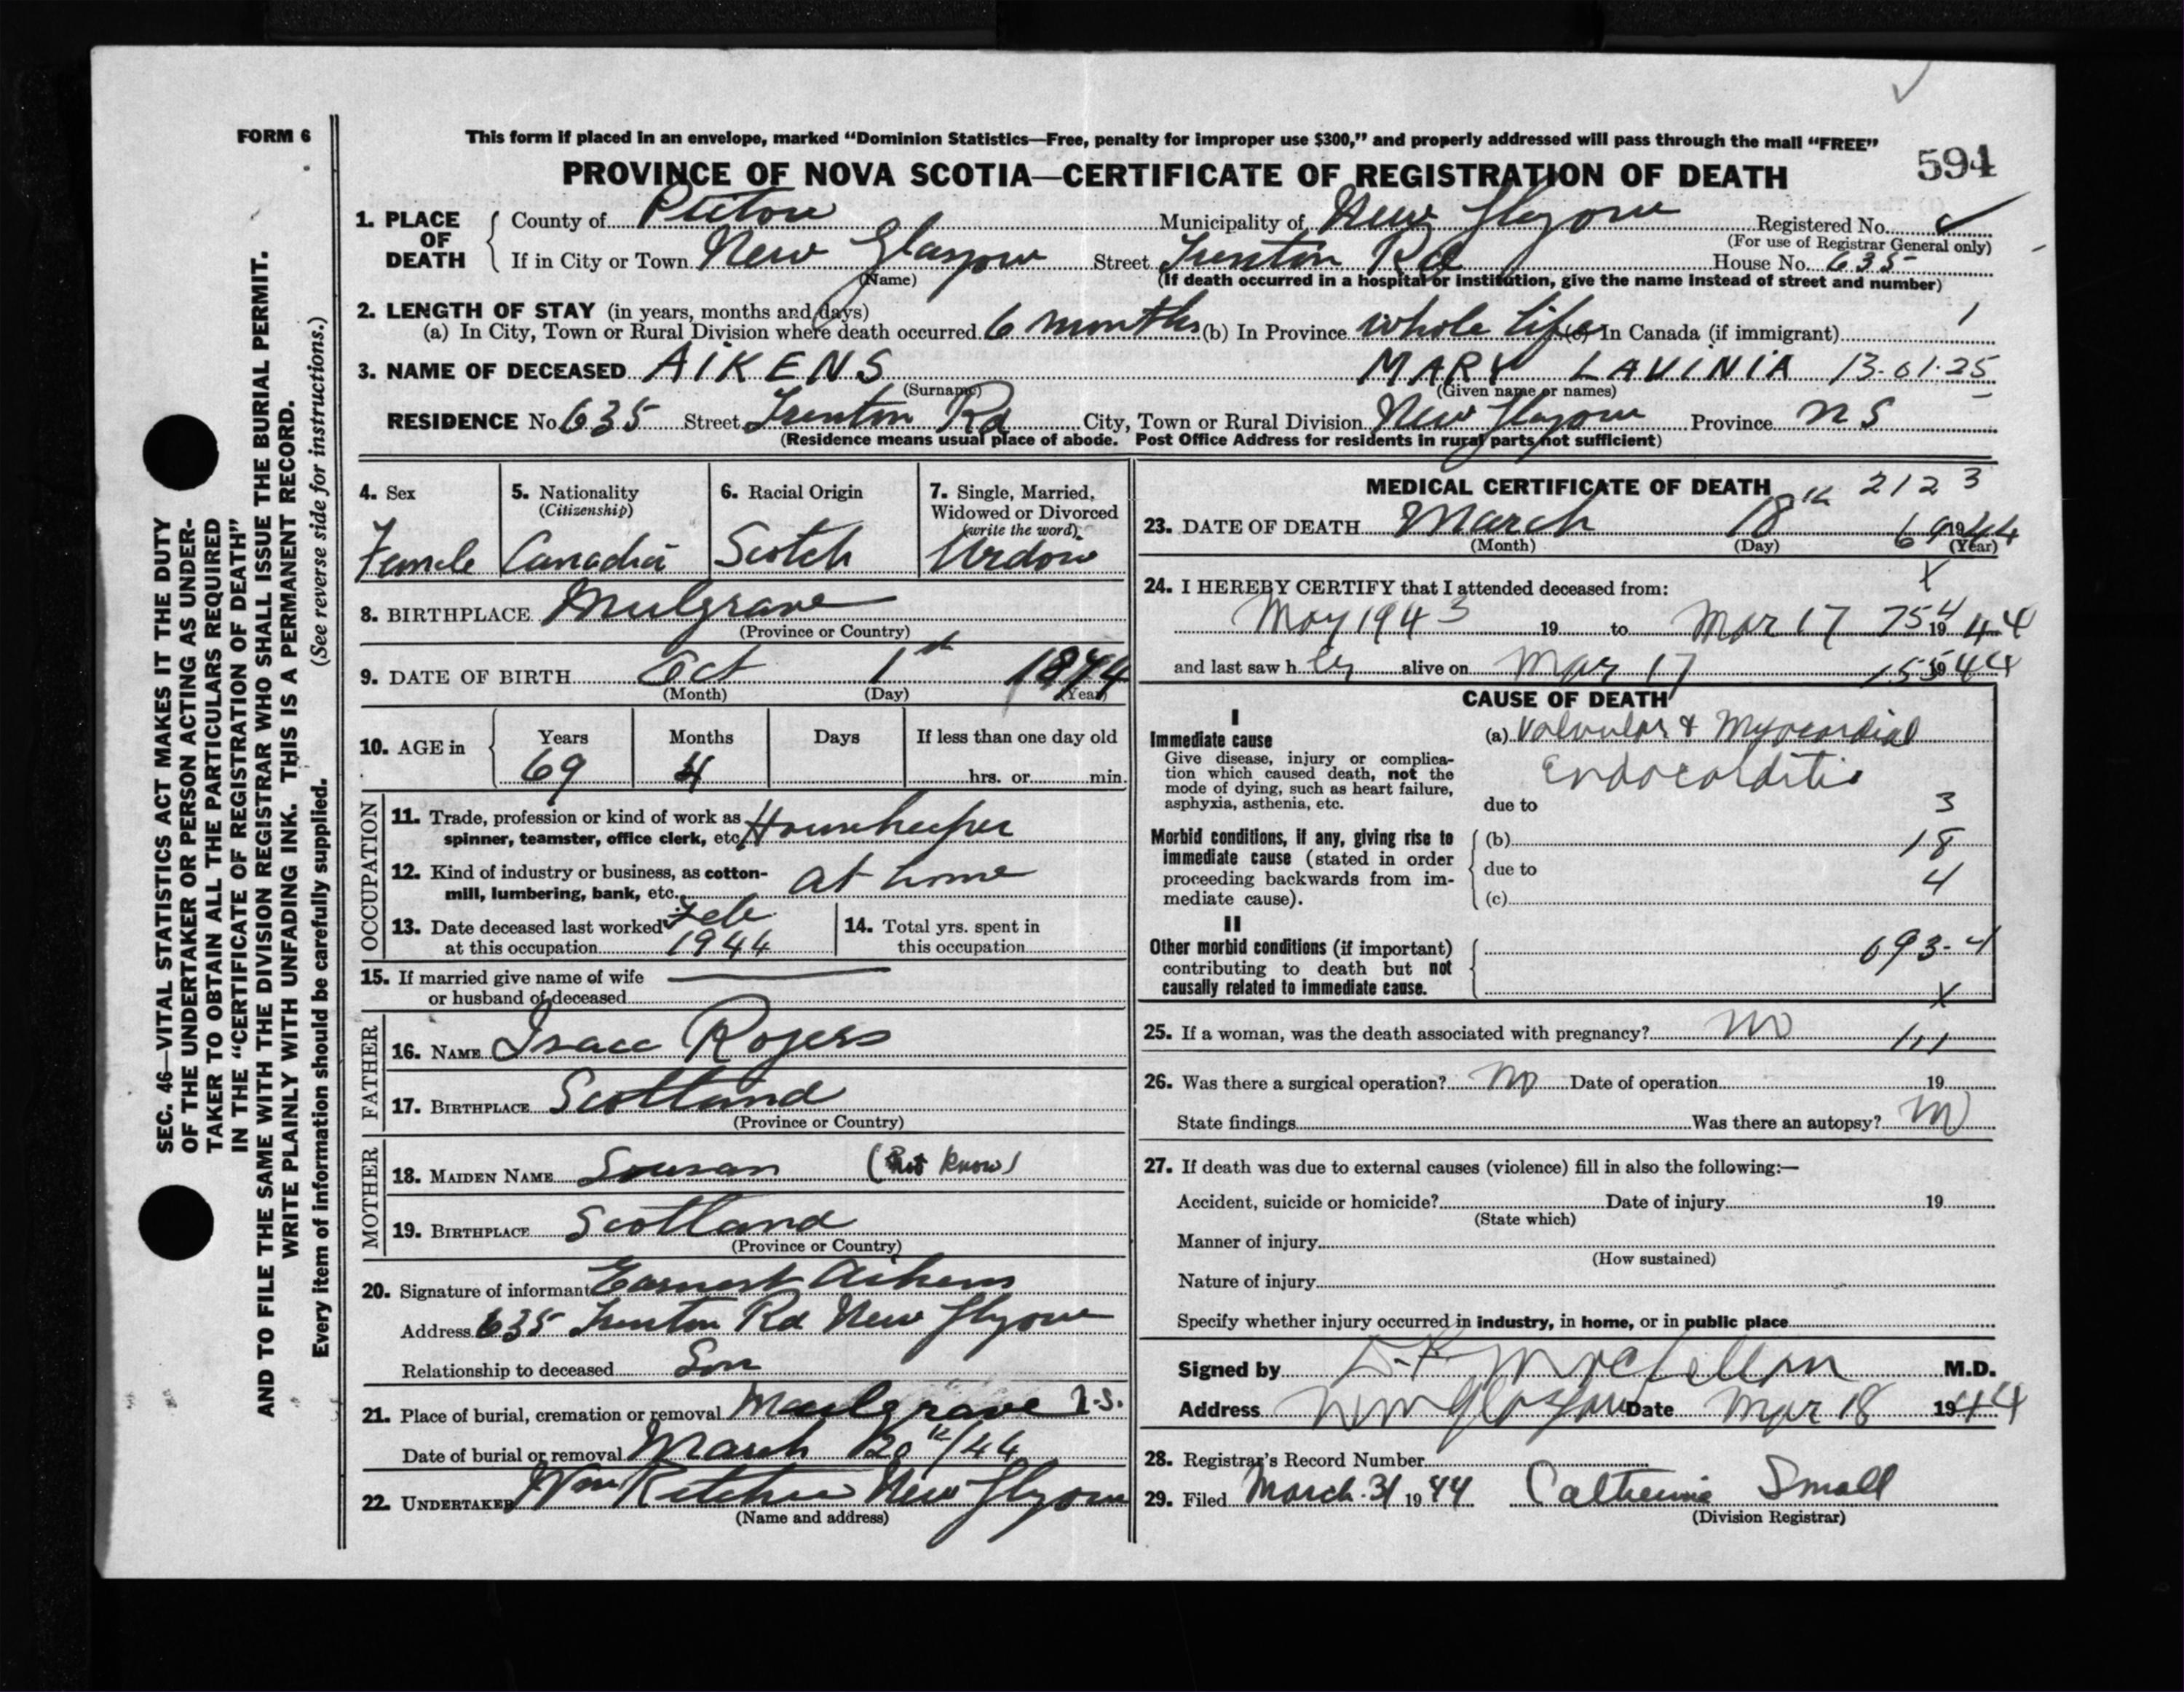 FORM 6
This form if placed in an envelope, marked “Dominion Statistics—Free, penalty for improper use $300,” and properly addressed will pass through the mail “FREE”
PROVINCE OF NOVA SCOTIA—CERTIFICATE OF REGISTRATION OF DEATH
594
1. PLACE OF DEATH
County of Pictou Municipality of New Glasgow Registered No.
(For use of Registrar General only)
If in City or Town New Glasgow Street Trenton Rd House No. 635
(Name) (If death occurred in a hospital or institution, give the name instead of street and number)
2. LENGTH OF STAY (in years, months and days)
(a) In City, Town or Rural Division where death occurred 6 months (b) In Province whole life (c) In Canada (if immigrant) 1
3. NAME OF DECEASED AIKENS MARY LAVINIA 13-01-25
(Surname) (Given name or names)
RESIDENCE No. 635 Street Trenton Rd City, Town or Rural Division New Glasgow Province N S
(Residence means usual place of abode. Post Office Address for residents in rural parts not sufficient)
4. Sex
Female
5. Nationality
(Citizenship)
Canadian
6. Racial Origin
Scotch
7. Single, Married,
Widowed or Divorced
(write the word)
Widow
8. BIRTHPLACE Mulgrave
(Province or Country)
9. DATE OF BIRTH Oct 1st 1874
(Month) (Day) (Year)
10. AGE in
Years Months Days If less than one day old
69 4 hrs. or min.
OCCUPATION
11. Trade, profession or kind of work as
spinner, teamster, office clerk, etc. Housekeeper
12. Kind of industry or business, as cotton-
mill, lumbering, bank, etc. at home
13. Date deceased last worked Feb
at this occupation 1944
14. Total yrs. spent in
this occupation
15. If married give name of wife
or husband of deceased
FATHER
16. NAME Isaac Rogers
17. BIRTHPLACE Scotland
(Province or Country)
MOTHER
18. MAIDEN NAME Sousan (Not Know)
19. BIRTHPLACE Scotland
(Province or Country)
20. Signature of informant Earnest Aikens
Address 635 Trenton Rd New Glasgow
Relationship to deceased Son
21. Place of burial, cremation or removal Maulgrave N.S.
Date of burial or removal March 20th/44
22. UNDERTAKER Wm Ritchie New Glasgow
(Name and address)
MEDICAL CERTIFICATE OF DEATH 2123
23. DATE OF DEATH March 18th 69 1944
(Month) (Day) (Year)
X
24. I HEREBY CERTIFY that I attended deceased from:
May 1943 19 to Mar 17 754 1944
and last saw her alive on Mar 17 155 1944
CAUSE OF DEATH
I
Immediate cause
Give disease, injury or complica-
tion which caused death, not the
mode of dying, such as heart failure,
asphyxia, asthenia, etc.
(a) Valvular & Myocardial
Endocarditis
due to 3
Morbid conditions, if any, giving rise to
immediate cause (stated in order
proceeding backwards from im-
mediate cause).
(b) 18
due to 4
(c)
II
Other morbid conditions (if important)
contributing to death but not
causally related to immediate cause.
693-4
X
25. If a woman, was the death associated with pregnancy? No
26. Was there a surgical operation? No Date of operation 19
State findings Was there an autopsy? No
27. If death was due to external causes (violence) fill in also the following:—
Accident, suicide or homicide? Date of injury 19
(State which)
Manner of injury
(How sustained)
Nature of injury
Specify whether injury occurred in industry, in home, or in public place
Signed by M.D.
Address New Glasgow Date Mar 18 1944
28. Registrar's Record Number
29. Filed March 31 1944 Catherine Small
(Division Registrar)
SEC. 46—VITAL STATISTICS ACT MAKES IT THE DUTY
OF THE UNDERTAKER OR PERSON ACTING AS UNDER-
TAKER TO OBTAIN ALL THE PARTICULARS REQUIRED
IN THE “CERTIFICATE OF REGISTRATION OF DEATH”
AND TO FILE THE SAME WITH THE DIVISION REGISTRAR WHO SHALL ISSUE THE BURIAL PERMIT.
WRITE PLAINLY WITH UNFADING INK. THIS IS A PERMANENT RECORD.
Every item of information should be carefully supplied. (See reverse side for instructions.)